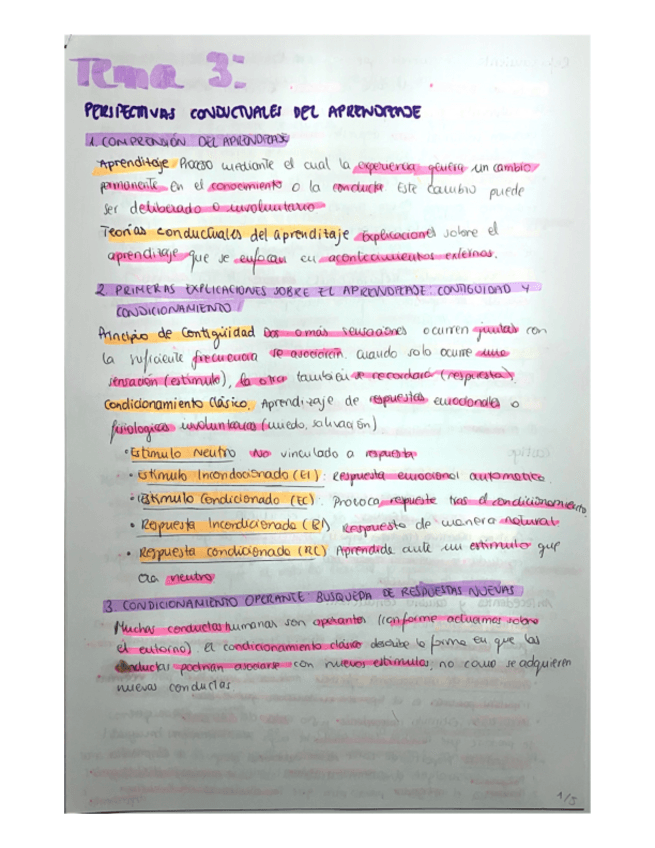 Tema 3:
PERSPECTIVAS CONDUCTUALES DEL APRENDIZAJE
1. COMPRENSIÓN DEL APRENDIZAJE
Aprenditaje Proceso mediante el cual la experiencia genera un cambio
permanente en el conocimiento o la conducta Este cambio puede
ser deliberado o involuntario
Teorías conductuales del aprenditaje Explicaciones sobre el
aprenditaje que se enfocan en acontecimientos externos.
2. PRIMERAS EXPLICACIONES SOBRE EL APRENDIZAJE: CONTIGUIDAD Y
CONDICIONAMIENTO
Principio de Contigüidad Dos o más sensaciones ocurren juntas con
la suficiente frecuencia se asocian. cuando solo ocurre una
sensación (estímulo), la otra también se recordará (respuesta).
Condicionamiento Clásico. Aprendizaje de respuestas emocionales o
fisiologicas involuntarias (miedo, salivación)
• Estímulo Neutro No vinculado a respuesta
• Estímulo Incondocionado (EI): Respuesta emocional automático.
• Estímulo Condicionado (EC): Provoca respuesta tras el condicionamiento
• Respuesta Incondicionada (RI) Respuesta de manera natural
• Respuesta condicionada (RC) Aprendida ante un estímulo que
era neutro
3. CONDICIONAMIENTO OPERANTE BUSQUEDA DE RESPUESTAS NUEVAS
Muchas conductas humanas son operantes (conforme actuamos sobre
el entorno). el condicionamiento clásico describe la forma en que las
conductas podrían asociarse con nuevos estímulos, no como se adquieren
nuevas conductas
1/5